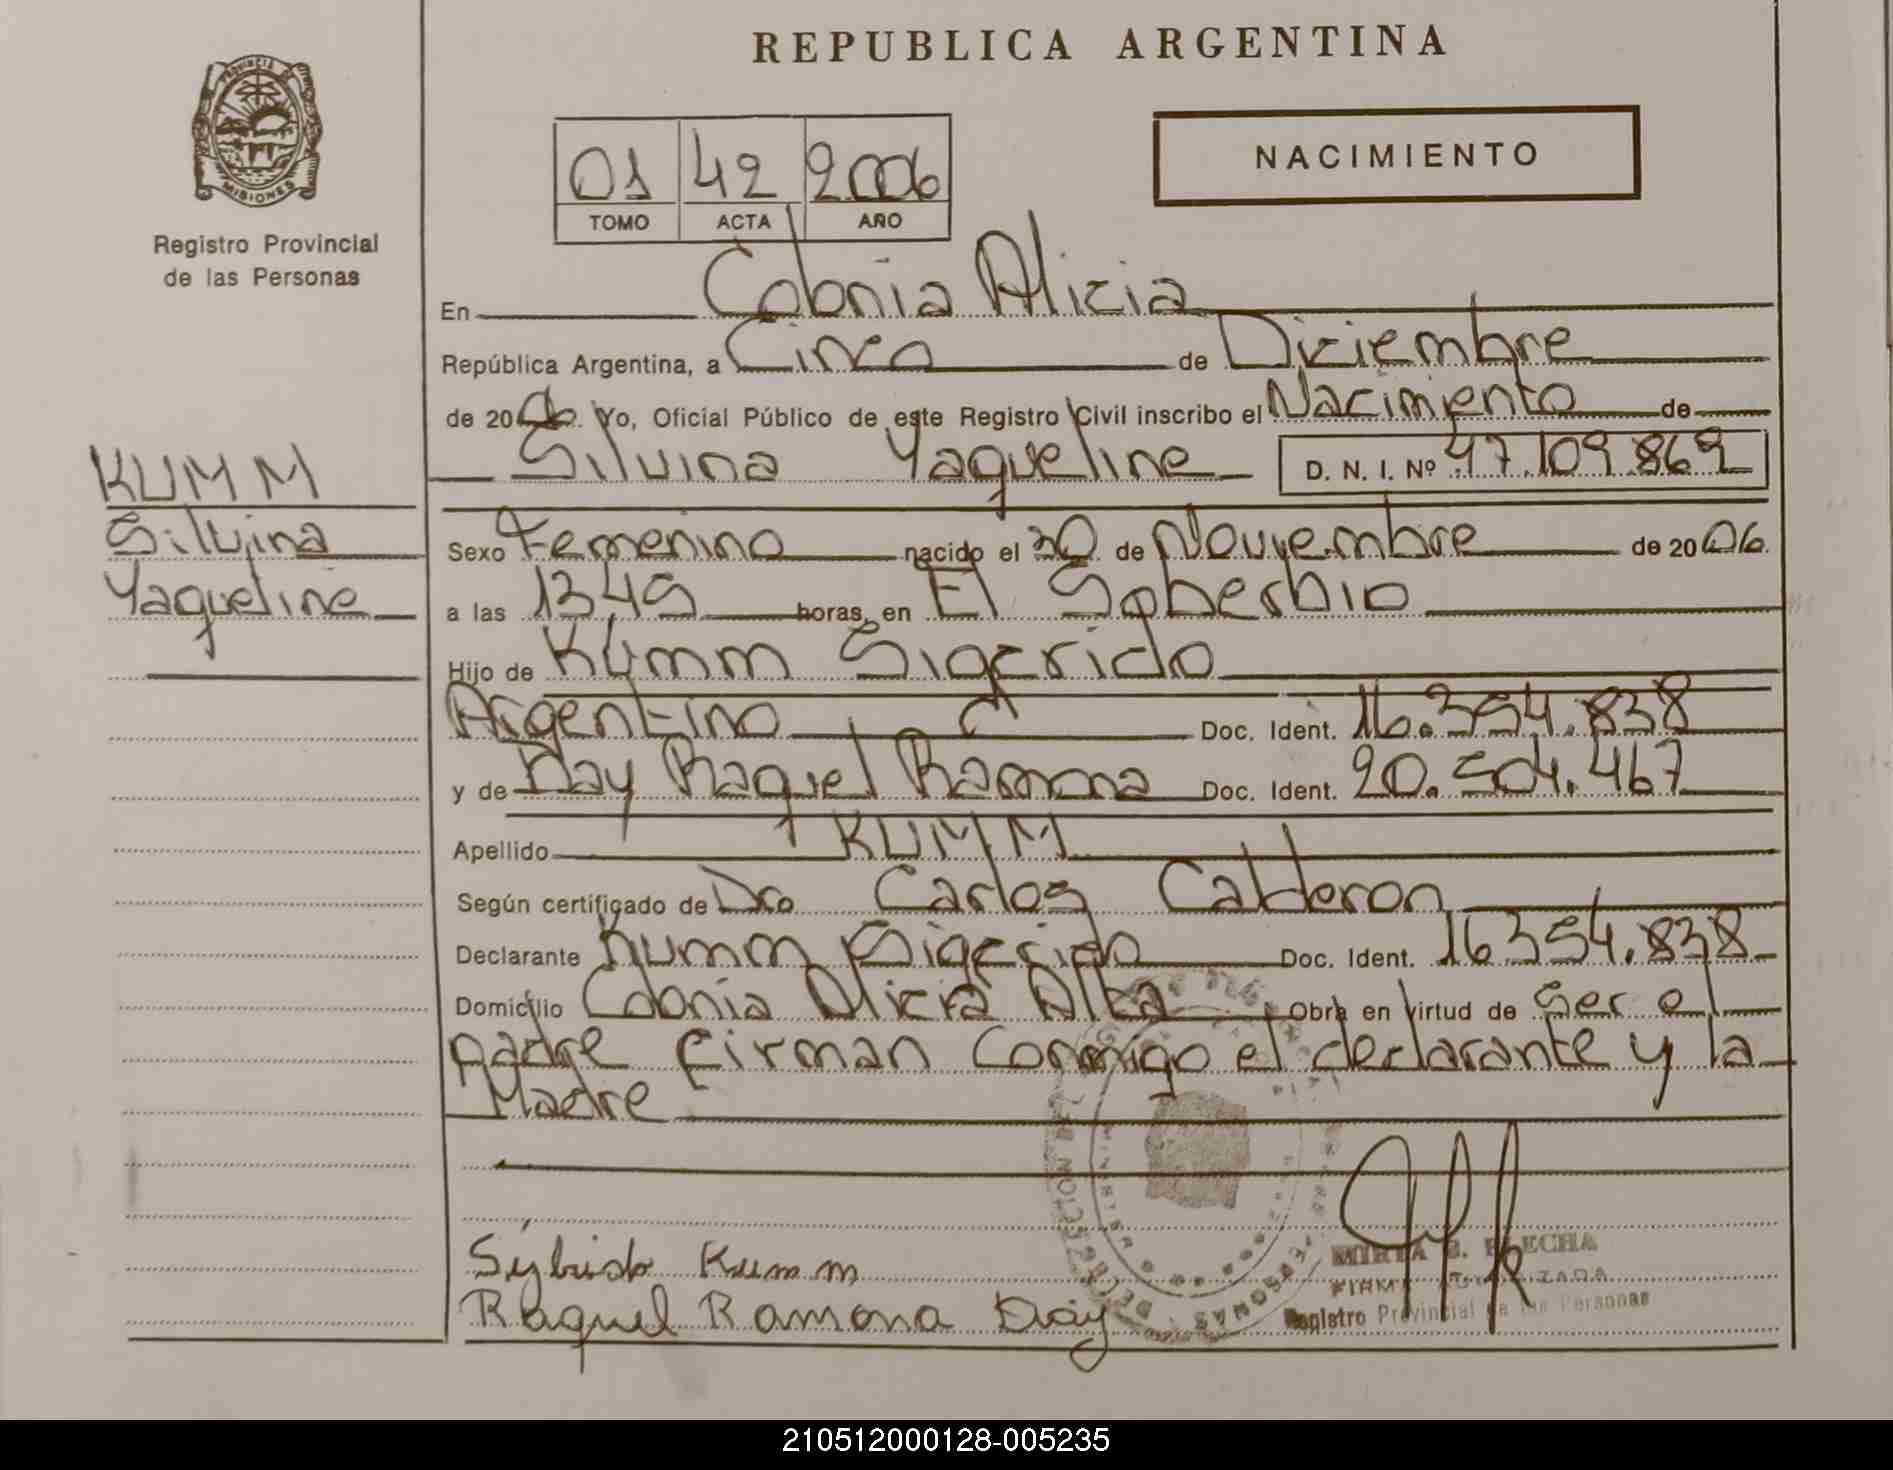 REPUBLICA ARGENTINA
PROVINCIA DE
MISIONES
Registro Provincial
de las Personas
01 42 2006
TOMO ACTA AÑO
NACIMIENTO
En Colonia Alicia
República Argentina, a Cinco de Diciembre
de 2006. Yo, Oficial Público de este Registro Civil inscribo el Nacimiento de
Silvina Yaqueline D. N. I. Nº 47.109.869
KUMM
Silvina
Yaqueline
Sexo Femenino nacido el 30 de Noviembre de 2006.
a las 13,45 horas, en El Soberbio
Hijo de Kumm Sigerido
Argentino Doc. Ident. 16.354.838
y de Day Raquel Ramona Doc. Ident. 20.504.467
Apellido KUMM
Según certificado de Dro Carlos Calderon
Declarante Kumm Sigerido Doc. Ident. 16354.838
Domicilio Colonia Alicia Alta Obra en virtud de Ser el
padre firman Conmigo el declarante y la
Madre
Kumm
Raquel Ramona Day
MIRTA FLECHA
FIRMA AUTORIZADA
Registro Provincial de las Personas
210512000128-005235